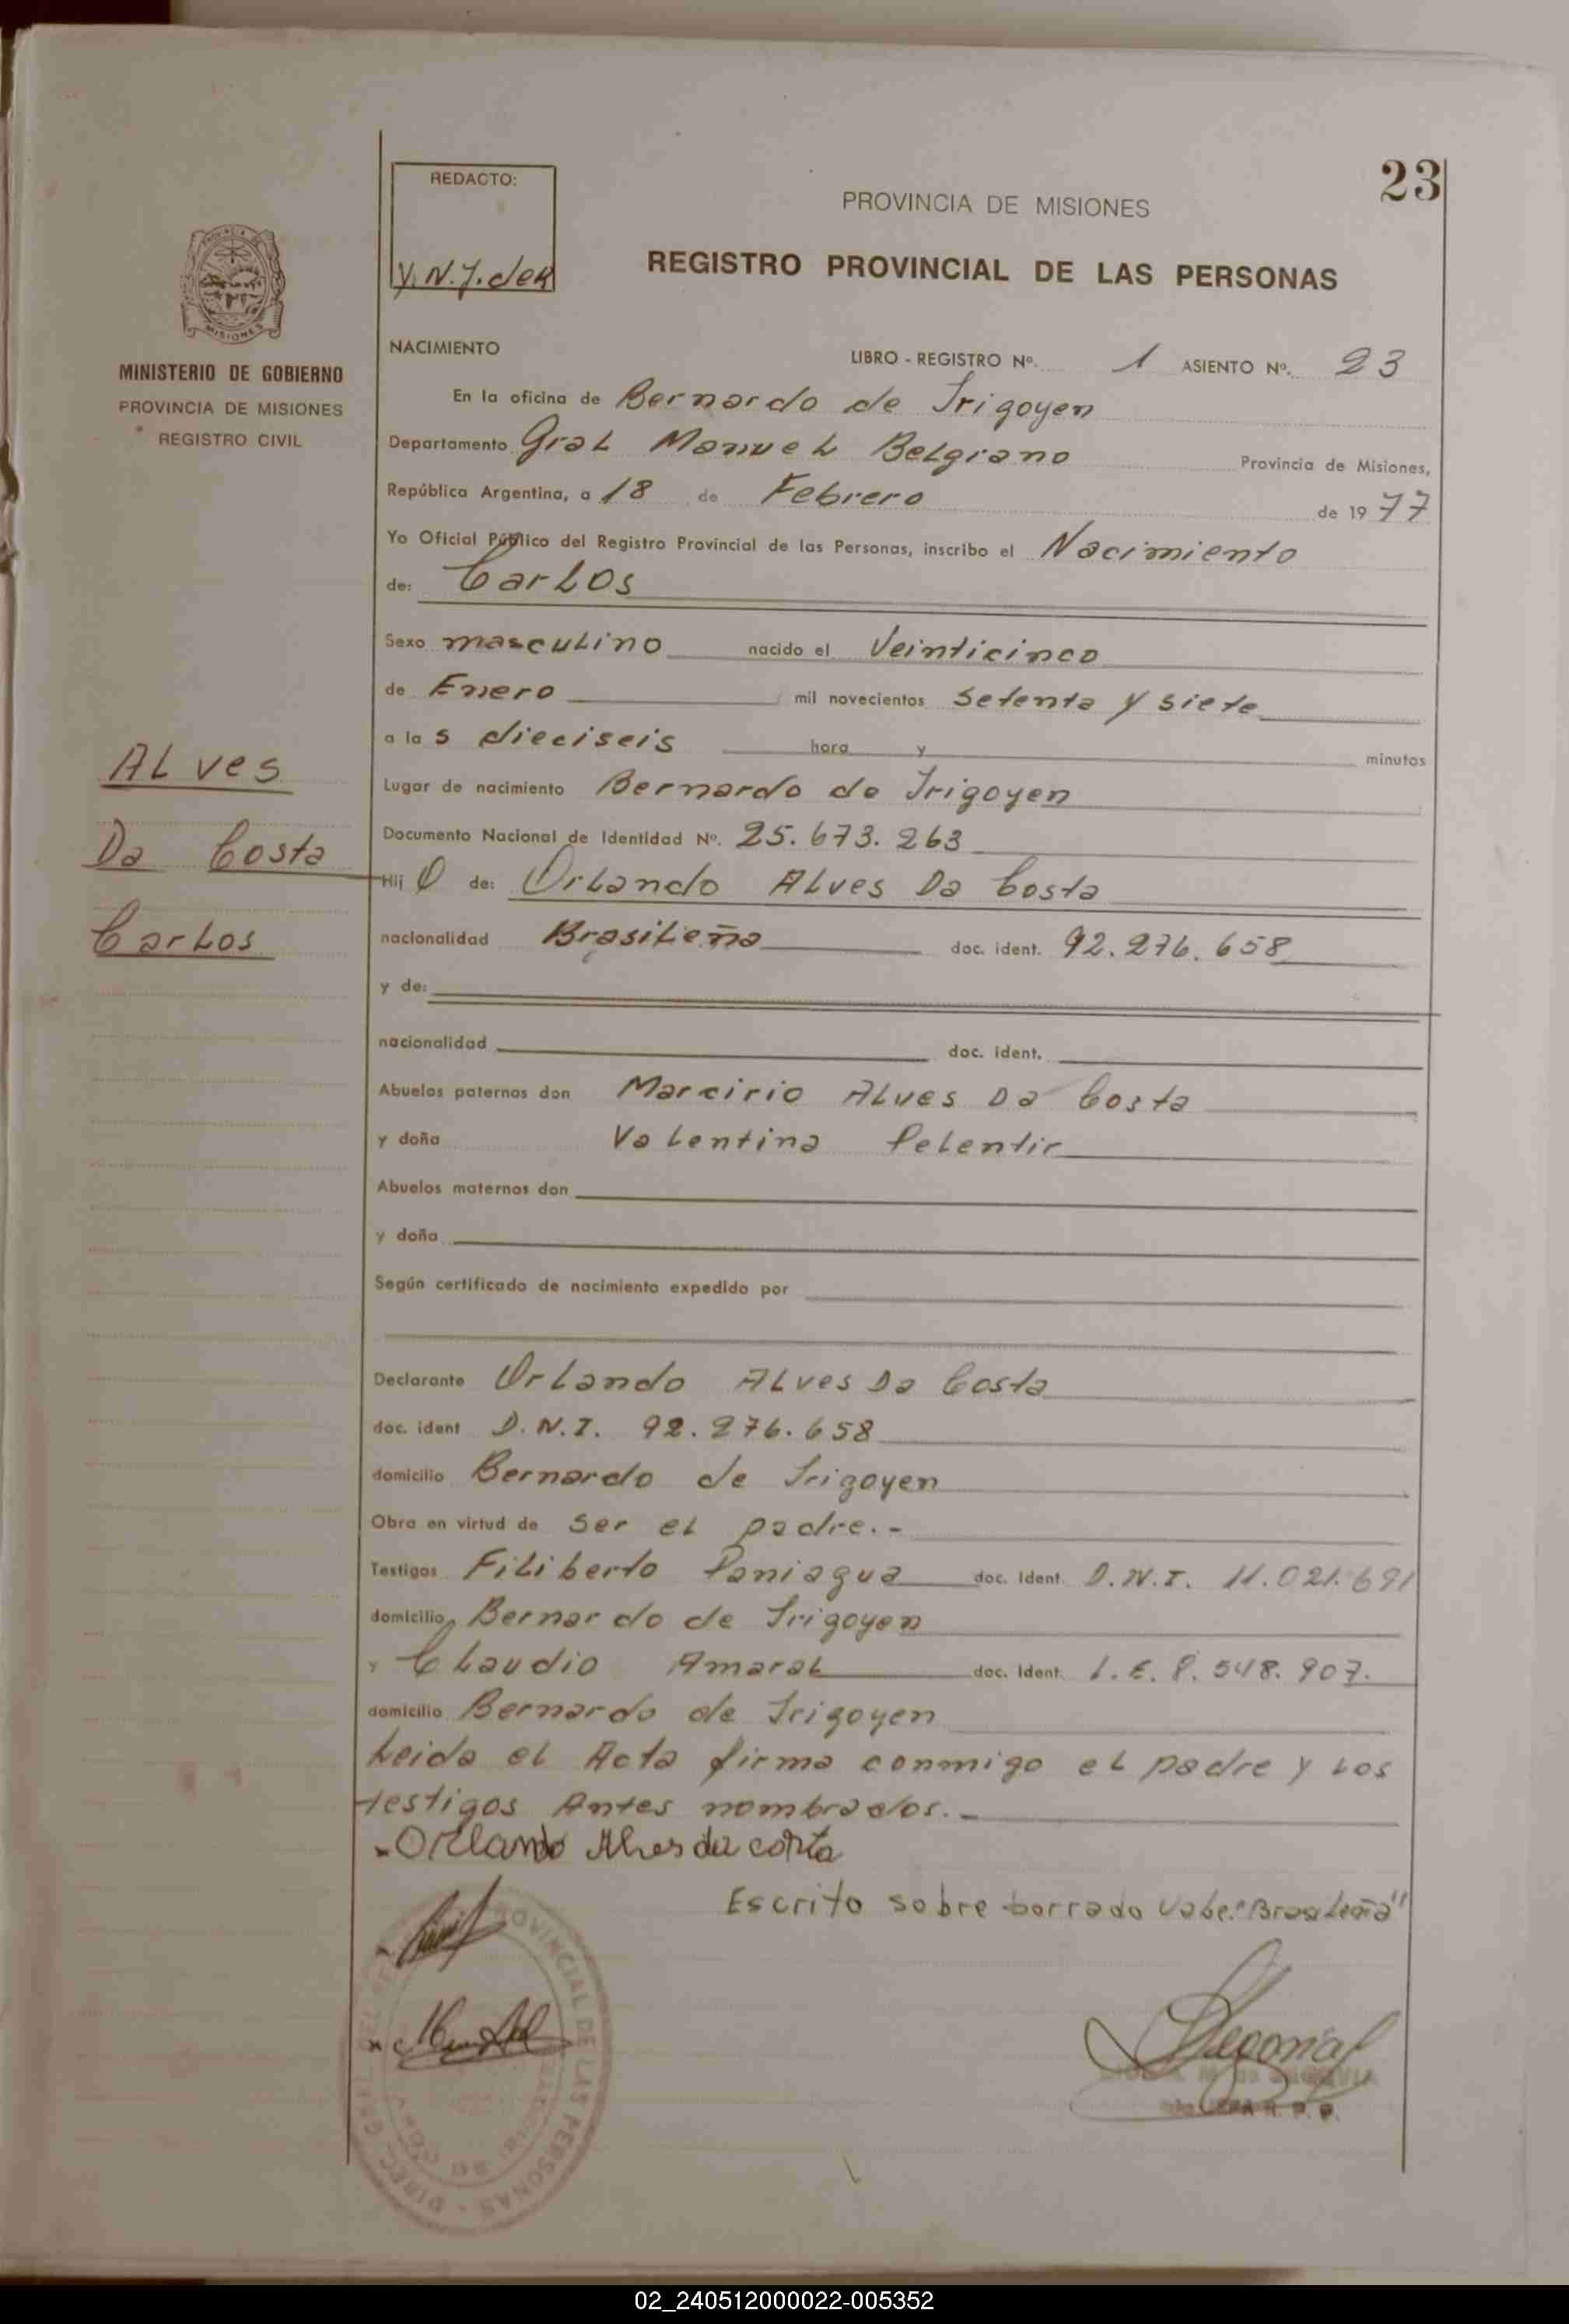 23
REDACTO:
Y.N.J.deR
PROVINCIA DE MISIONES
REGISTRO PROVINCIAL DE LAS PERSONAS
MISIONES
MINISTERIO DE GOBIERNO
PROVINCIA DE MISIONES
REGISTRO CIVIL
NACIMIENTO LIBRO - REGISTRO Nº. 1 ASIENTO Nº. 23
En la oficina de Bernardo de Irigoyen
Departamento Gral Manuel Belgrano Provincia de Misiones,
República Argentina, a 18 de Febrero de 1977
Yo Oficial Público del Registro Provincial de las Personas, inscribo el Nacimiento
de: Carlos
Sexo masculino nacido el Veinticinco
de Enero mil novecientos setenta y siete
a las dieciseis hora y minutos
Lugar de nacimiento Bernardo de Irigoyen
Documento Nacional de Identidad Nº. 25.673.263
Hijo de: Orlando Alves Da Costa
nacionalidad Brasileña doc. ident. 92.276.658
y de:
nacionalidad doc. ident.
Abuelos paternos don Marcirio Alves Da Costa
y doña Valentina Pelentir
Abuelos maternos don
y doña
Según certificado de nacimiento expedido por
Declarante Orlando Alves Da Costa
doc. ident D.N.I. 92.276.658
domicilio Bernardo de Irigoyen
Obra en virtud de ser el padre.-
Testigos Filiberto Paniagua doc. Ident. D.N.I. 11.021.691
domicilio Bernardo de Irigoyen
y Claudio Amaral doc. Ident. L.E. 8.548.907.
domicilio Bernardo de Irigoyen
Leida el Acta firma conmigo el padre y los
testigos Antes nombrados.-
Orlando Alves da costa
Escrito sobre borrado Vale "Brasileña"
Alves
Da Costa
Carlos
PROVINCIAL DE LAS PERSONAS
02_240512000022-005352